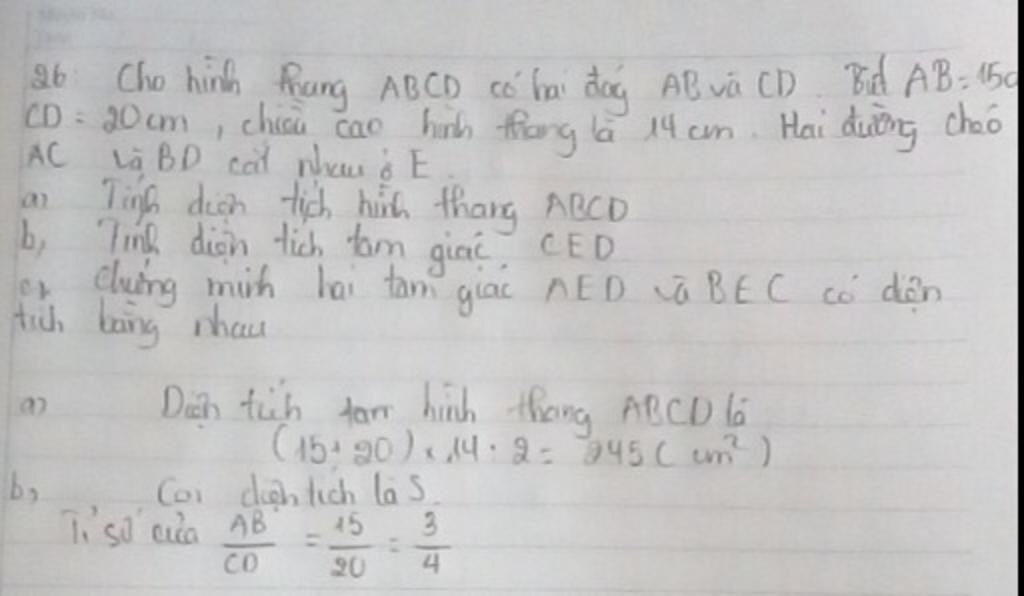 26: Cho hình thang ABCD có hai đáy AB và CD. Biết AB = 15c
CD = 20cm, chiều cao hình thang là 14 cm. Hai đường chéo
AC và BD cắt nhau ở E.
a) Tính diện tích hình thang ABCD
b, Tính diện tích tam giác CED
c, Chứng minh hai tam giác AED và BEC có diện
tích bằng nhau
a) Diện tích tam hình thang ABCD là
(15+20) x 14 : 2 = 245 ( cm² )
b, Coi diện tích là S.
Tỉ số của AB/CD = 15/20 = 3/4